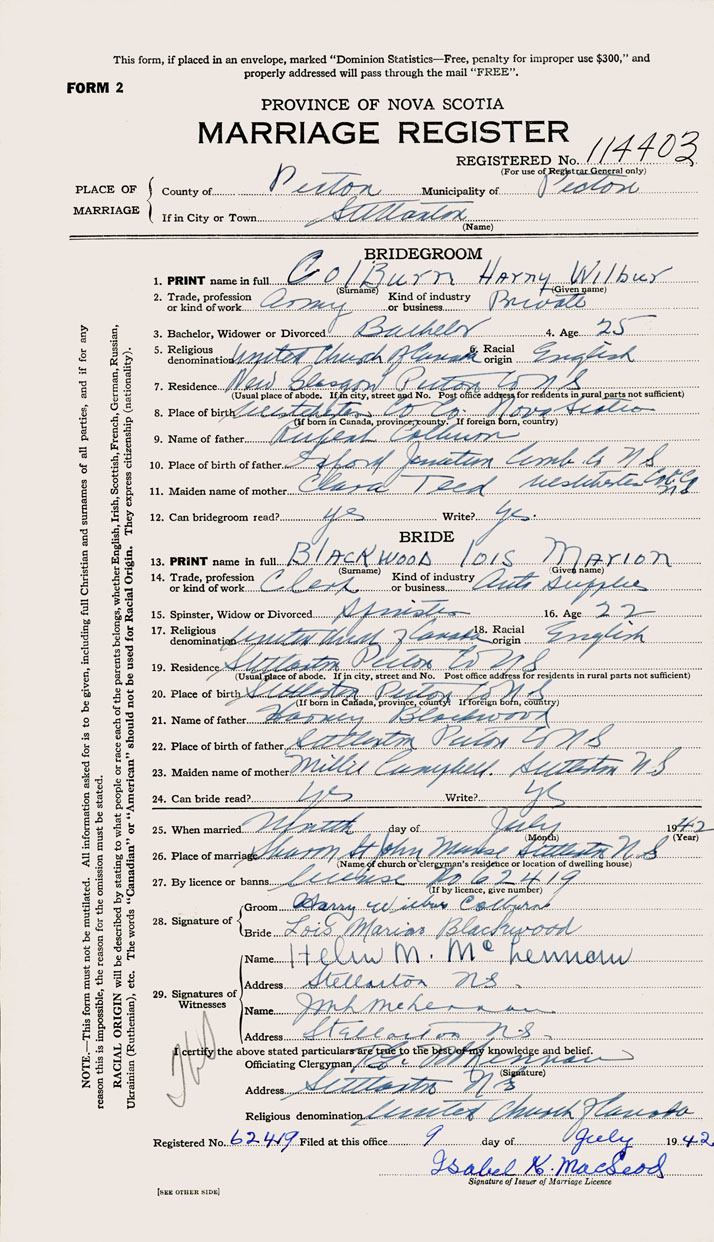 This form, if placed in an envelope, marked "Dominion Statistics—Free, penalty for improper use $300," and
properly addressed will pass through the mail "FREE".
FORM 2
PROVINCE OF NOVA SCOTIA
MARRIAGE REGISTER
REGISTERED No. 114403
(For use of Registrar General only)
PLACE OF MARRIAGE
County of Pictou Municipality of Pictou
If in City or Town Stellarton
(Name)
BRIDEGROOM
1. PRINT name in full ColBurn Harry Wilbur
(Surname) (Given name)
2. Trade, profession or kind of work Army Kind of industry or business Private
3. Bachelor, Widower or Divorced Bachelor 4. Age 25
5. Religious denomination United Church of Canada 6. Racial origin English
7. Residence New Glasgow Pictou Co N S
(Usual place of abode. If in city, street and No. Post office address for residents in rural parts not sufficient)
8. Place of birth Westchester Co Co. Nova Scotia
(If born in Canada, province, county. If foreign born, country)
9. Name of father Colburn
10. Place of birth of father Oxford Junction Cumb Co N S
11. Maiden name of mother Clara Teed Westchester Co N S
12. Can bridegroom read? yes Write? yes.
BRIDE
13. PRINT name in full BLACKWOOD lois MARION
(Surname) (Given name)
14. Trade, profession or kind of work Clerk Kind of industry or business Auto Supplies
15. Spinster, Widow or Divorced Spinster 16. Age 22
17. Religious denomination United Church of Canada 18. Racial origin English
19. Residence Stellarton Pictou Co N S
(Usual place of abode. If in city, street and No. Post office address for residents in rural parts not sufficient)
20. Place of birth Stellarton Pictou Co N S
(If born in Canada, province, county. If foreign born, country)
21. Name of father Harvey Blackwood
22. Place of birth of father Stellarton Pictou Co N S
23. Maiden name of mother Millie Campbell. Stellarton N S
24. Can bride read? yes Write? yes
25. When married Ninth day of July 1942
(Month) (Year)
26. Place of marriage Sharon St John Manse Stellarton N.S
(Name of church or clergyman's residence or location of dwelling house)
27. By licence or banns license No 62419
(If by licence, give number)
28. Signature of
Groom Harry Wilbur Colburn
Bride Lois Marion Blackwood
29. Signatures of Witnesses
Name Helen M. McLennan
Address Stellarton N.S.
Name McLennan
Address Stellarton N.S.
I certify the above stated particulars are true to the best of my knowledge and belief.
Officiating Clergyman McLennan
(Signature)
Address Stellarton N S
Religious denomination United Church of Canada
Registered No. 62419 Filed at this office 9 day of July 1942
Isabel K. MacLeod
Signature of Issuer of Marriage Licence
[SEE OTHER SIDE]
NOTE.—This form must not be mutilated. All information asked for is to be given, including full Christian and surnames of all parties, and if for any
reason this is impossible, the reason for the omission must be stated.
RACIAL ORIGIN will be described by stating to what people or race each of the parents belongs, whether English, Irish, Scottish, French, German, Russian,
Ukrainian (Ruthenian), etc. The words "Canadian" or "American" should not be used for Racial Origin. They express citizenship (nationality).